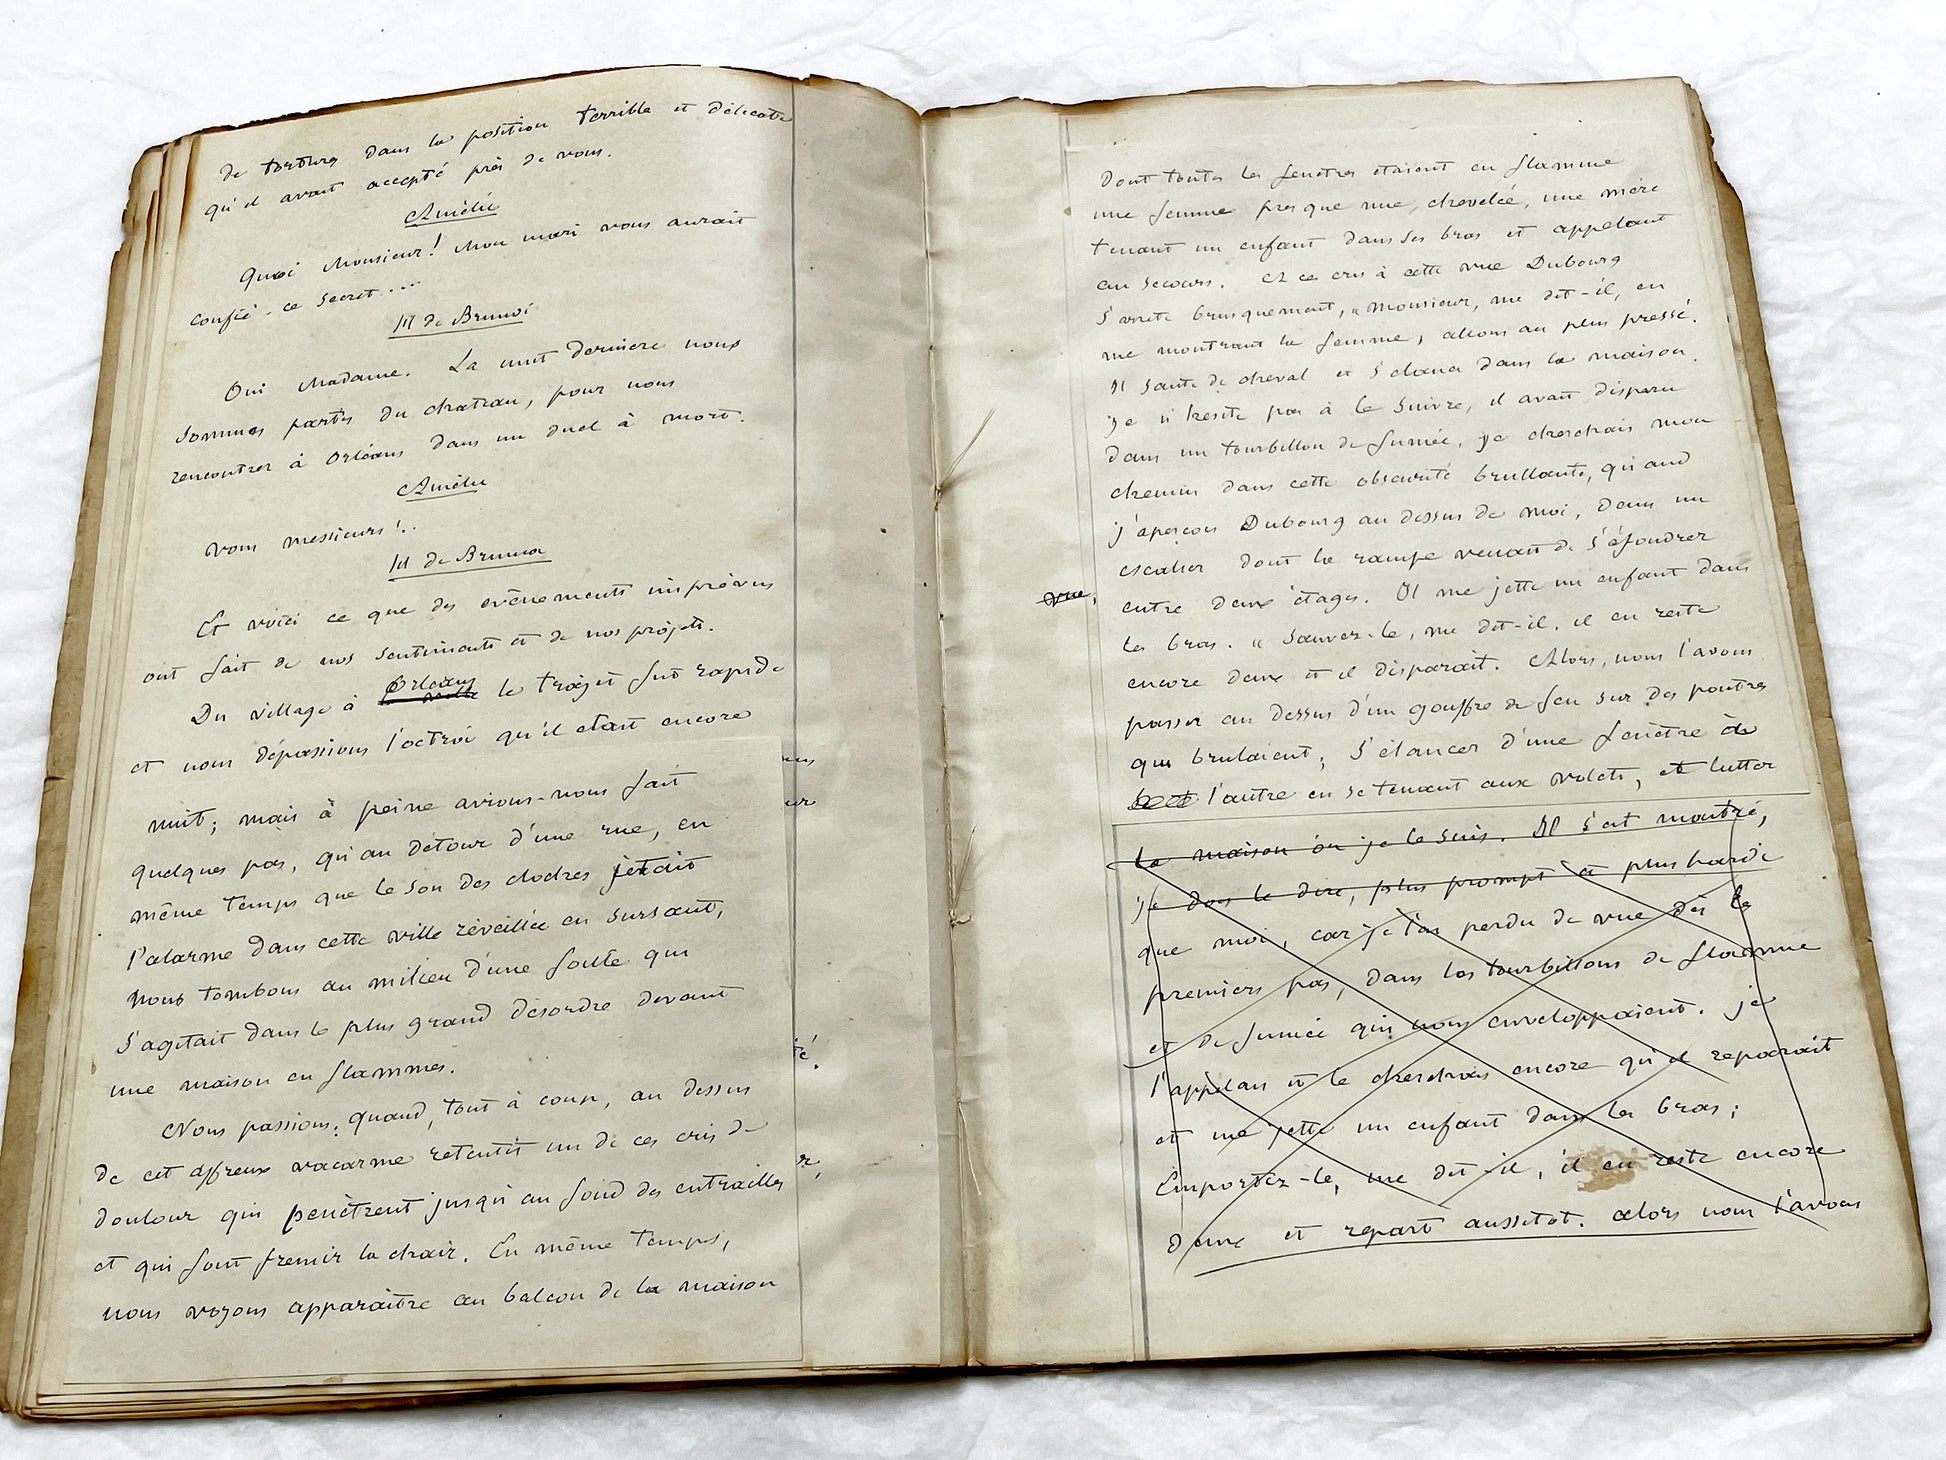 de tortures dans la position terrible et délicate
qu'il avait accepté près de vous.
Amélie
Quoi Monsieur! Mon mari vous aurait
confié ce secret....
M de Brunoi
Oui Madame. La nuit dernière nous
sommes partis du chateau, pour nous
rencontrer à Orléans dans un duel à mort.
Amélie
Vous messieurs!..
M de Brunoi
Et voici ce que des evènements imprévus
ont fait de nos sentiments et de nos projets.
Orléans
Du village à la ville le trajet fut rapide
et nous dépassions l'octroi qu'il etait encore
nuit; mais à peine avions-nous fait
quelques pas, qu'au détour d'une rue, en
même temps que le son des cloches jetait
l'alarme dans cette ville réveillée en sursaut,
nous tombons au milieu d'une foule qui
s'agitait dans le plus grand désordre devant
une maison en flammes.
Nous passions, quand, tout à coup, au dessus
de cet affreux vacarme retentit un de ces cris de
douleur qui penètrent jusqu'au fond des entrailles
et qui font fremir la chair. En même temps,
nous voyons apparaitre au balcon de la maison
dont toutes les fenetres etaient en flamme
une femme presque nue, chevelée, une mère
tenant un enfant dans ses bras et appelant
au secours. A ces cris à cette vue Dubourg
s'arrete brusquement, "monsieur, me dit-il, en
me montrant la femme, allons au plus pressé.
Il saute de cheval et s'elança dans la maison.
je n'hesite pas à le suivre, il avait disparu
dans un tourbillon de fumée, je cherchais mon
chemin dans cette obscurité brullante, quand
j'aperçois Dubourg au dessus de moi, dans un
escalier dont la rampe venait de s'éfondrer
vue,
entre deux étages. Il me jette un enfant dans
les bras. "Sauvez-le, me dit-il, il en reste
encore deux et il disparait. Alors, nous l'avons
passer au dessus d'un gouffre de feu sur des poutres
qui brulaient, s'élancer d'une fenètre à
l'autre en se tenant aux volets, et lutter
la maison où je le suis. Il s'est montré,
je dois le dire, plus prompt et plus hardi
que moi, car je l'ai perdu de vue dès les
premiers pas, dans les tourbillons de flamme
et de fumée qui nous enveloppaient. je
l'appelais et le cherchais encore qu'il reparait
et me jette un enfant dans les bras;
Emportez-le, me dit-il, il en reste encore
deux et repart aussitot. alors nous l'avons